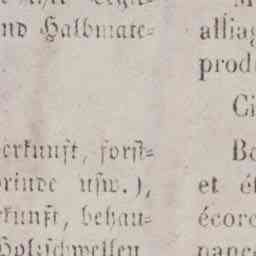 nd Halbmate-
erkunft, forst-
rinde usw.),
rkunft, behau-
Holzschwellen
alliag
prod
Ci
Bo
et é
écorc